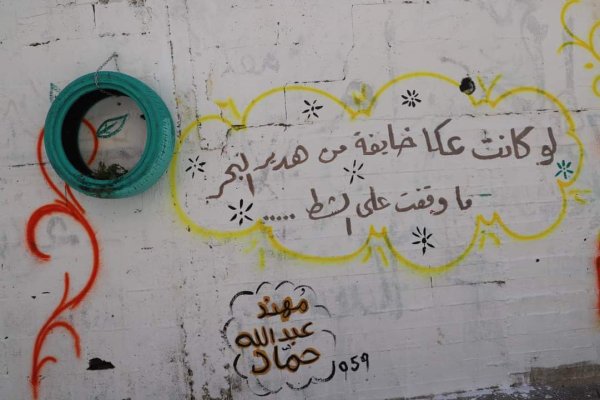 لو كانت عكا خايفة من هدير البحر
ما وقفت على الشط .....
مُهند
عبدالله
حمّاد
059